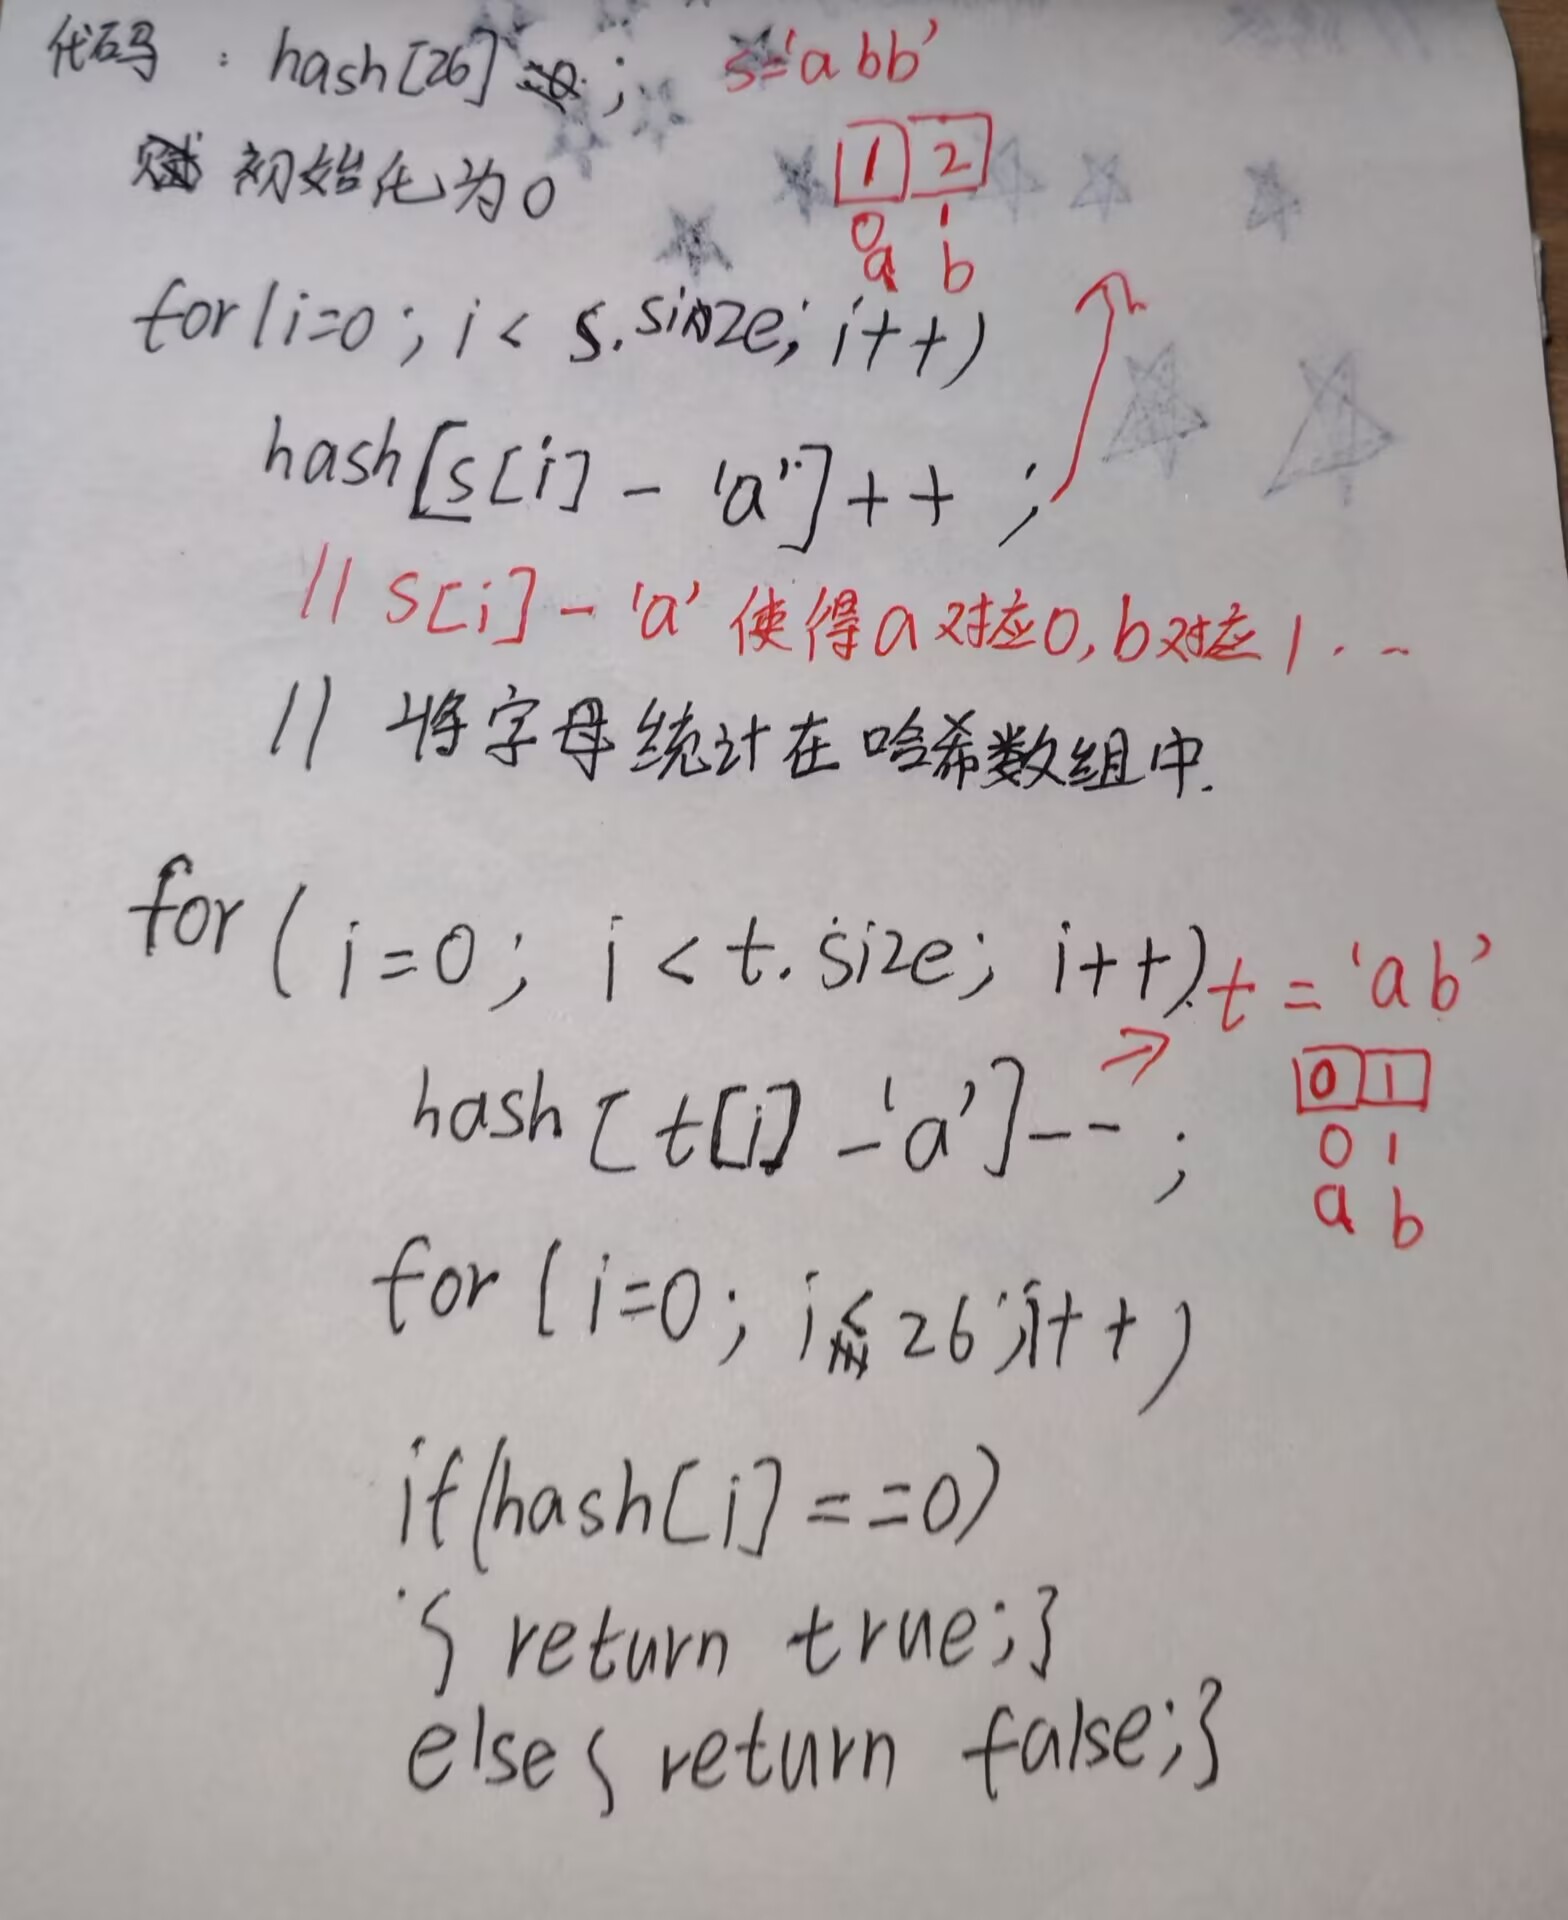 代码：hash[26]; s='abb'
1 2
初始化为0
0 1
a b
for(i=0; i< s.size; i++)
hash[s[i] - 'a']++;
// s[i]-'a' 使得a对应0,b对应1...
// 将字母统计在哈希数组中.
for(i=0; i<t.size; i++) t='ab'
0 1
hash[t[i]-'a']--;
0 1
a b
for(i=0; i<26; i++)
if(hash[i]==0)
{return true;}
else{return false;}